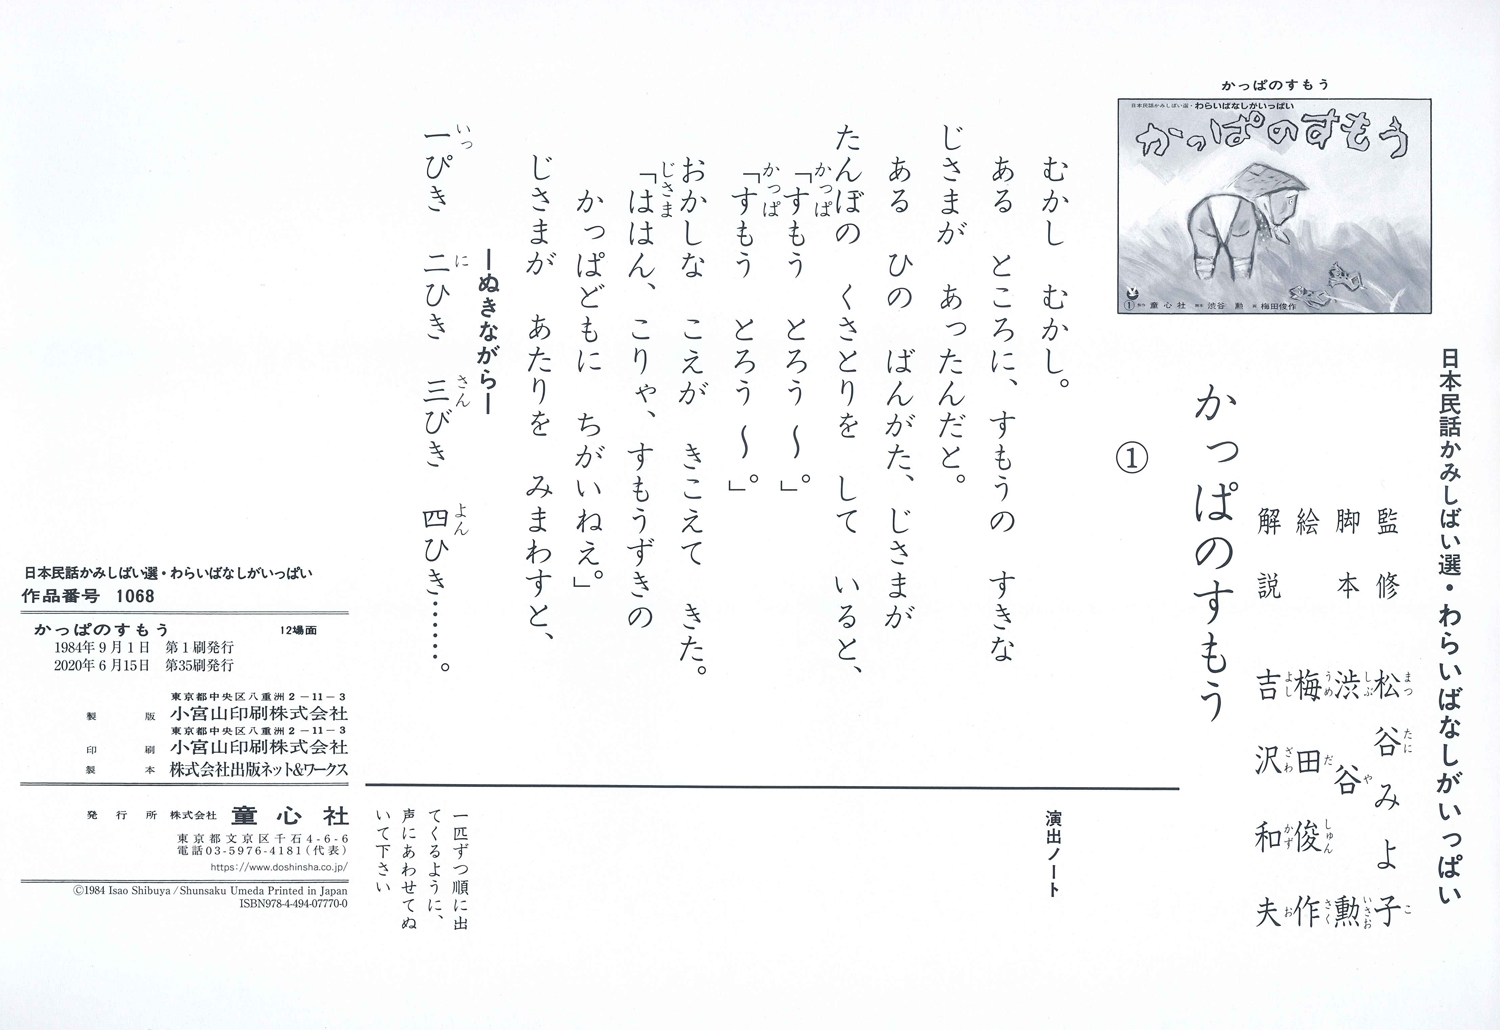 日本民話かみしばい選・わらいばなしがいっぱい
監修 松谷みよ子
まつ たに こ
脚本 渋谷 勲
しぶ や いさお
絵 梅田俊作
うめ だ しゅん さく
解説 吉沢和夫
よし ざわ かず お
かっぱのすもう
かっぱのすもう
日本民話かみしばい選・わらいばなしがいっぱい
かっぱのすもう
童心社 渋谷 勲 梅田俊作
①
むかし むかし。
ある ところに、すもうの すきな
じさまが あったんだと。
ある ひの ばんがた、じさまが
たんぼの くさとりを して いると、
かっぱ
「すもう とろう〜。」
かっぱ
「すもう とろう〜。」
おかしな こえが きこえて きた。
じさま
「ははん、こりゃ、すもうずきの
かっぱどもに ちがいねえ。」
じさまが あたりを みまわすと、
―ぬきながら―
いっ に さん よん
一ぴき 二ひき 三びき 四ひき……。
演出ノート
一匹ずつ順に出
てくるように、
声にあわせてぬ
いて下さい
日本民話かみしばい選・わらいばなしがいっぱい
作品番号 1068
かっぱのすもう 12場面
1984年9月1日 第1刷発行
2020年6月15日 第35刷発行
東京都中央区八重洲2−11−3
製版 小宮山印刷株式会社
東京都中央区八重洲2−11−3
印刷 小宮山印刷株式会社
製本 株式会社出版ネット&ワークス
発行所 株式会社 童心社
東京都文京区千石4-6-6
電話03-5976-4181(代表)
https://www.doshinsha.co.jp/
©1984 Isao Shibuya/Shunsaku Umeda Printed in Japan
ISBN978-4-494-07770-0